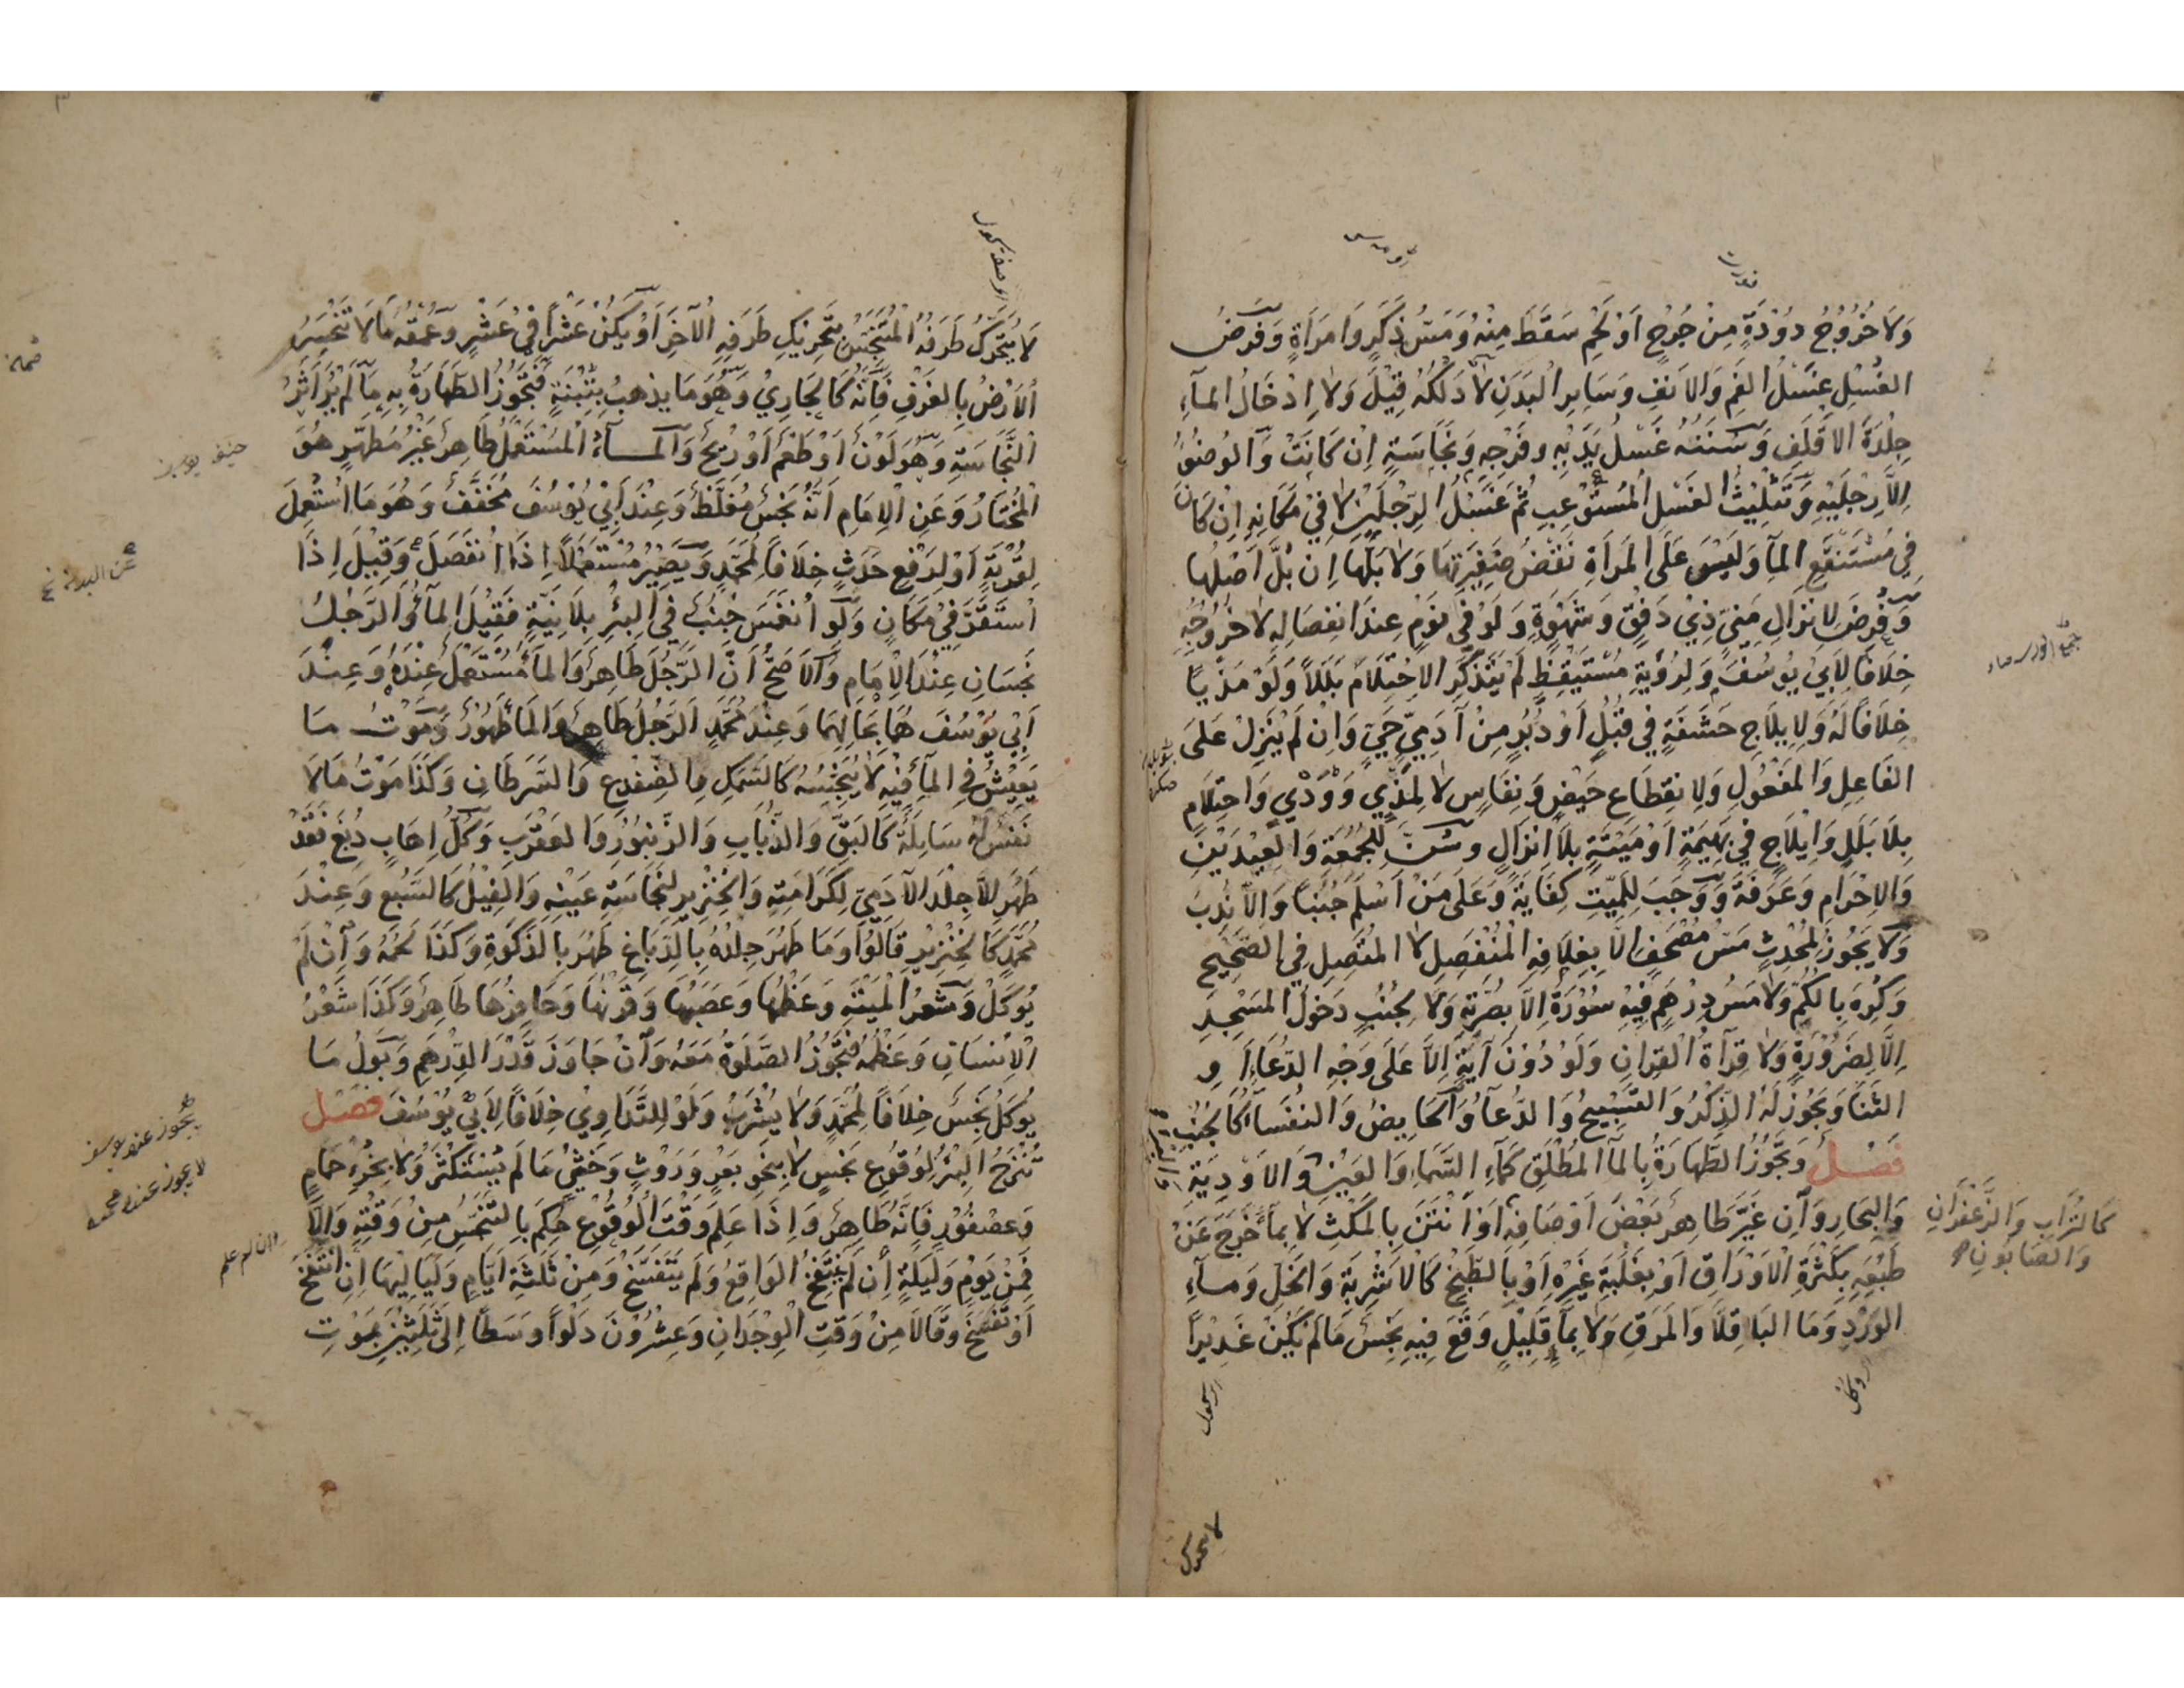 وَلَا خُرُوجُ دُوْدَةٍ مِنْ جُرْحٍ اَوْ لَحْمٍ سَقَطَ مِنْهُ وَمَسُّ ذَكَرٍ وَامْرَأَةٍ وَفَرْضُ
الغُسْلِ غَسْلُ الفَمِ وَالاَنفِ وَسَايِرِ البَدَنِ لَا دَلْكُهُ قِيْلَ وَلَا اِدْخَالُ المآءِ
جِلْدَةَ الاَقْلَفِ وَسُنَنُهُ غَسْلُ يَدَيْهِ وفَرْجِهِ وَنَجَاسَةٍ اِنْ كَانَتْ وَالوُضُوْءُ
اِلَّا رِجْلَيْهِ وَتَثْلِيْثُ الغَسْلِ المُسْتَوْعِبِ ثُمَّ غَسْلُ الرِّجْلَيْنِ لَا فِيْ مَكَانِهِ اِنْ كَانَ
فِي مُسْتَنْقَعِ المآءِ وَلَيْسَ عَلَى المَرأَةِ نَقْضُ ضَفِيْرَتِهَا وَلَا بَلُّهَا اِنْ بُلَّ اَصْلُهَا
وَفُرِضَ لِانْزَالِ مَنِيٍّ ذِيْ دَفْقٍ وَشَهْوَةٍ وَلَوْ فِي نَوْمٍ عِنْدَ انْفِصَالِهِ لَا خُرُوْجِهِ
خِلَافًا لِاَبِيْ يُوْسُفَ وَلِرُؤْيَةِ مُسْتَيْقِظٍ لَمْ يَتَذَكَّرِ الاحْتِلَامَ بَلَلاً وَلَوْ مَذْيًا
خِلَافًا لَهُ وَلِايْلَاجِ حَشَفَةٍ فِي قُبُلٍ اَوْ دُبُرٍ مِنْ آدَمِيٍّ حَيٍّ وَاِنْ لَمْ يُنْزِلْ عَلَى
الفَاعِلِ وَالمَفْعُوْلِ وَلِانقِطَاعِ حَيْضٍ وَنِفَاسٍ لَا لِمَذْيٍ وَوَدْيٍ وَاحْتِلَامٍ
بِلَا بَلَلٍ وَاِيْلَاجٍ فِيْ بَهِيْمَةٍ اَوْ مَيْتَةٍ بِلَا اِنْزَالٍ وسُنَّ لِلْجُمُعَةِ وَالْعِيْدَيْنِ
وَالاِحْرَامِ وَعَرَفَةَ وَوَجَبَ لِلْمَيِّتِ كِفَايَةً وَعَلَى مَنْ اَسْلَمَ جُنُبًا وَاِلَّا نُدِبَ
وَلَا يَجُوْزُ لِمُحْدِثٍ مَسُّ مُصْحَفٍ اِلَّا بِغِلَافِهِ الْمُنْفَصِلِ لَا المُتَّصِلِ فِي الصَّحِيْحِ
وَكُرِهَ بِالكُمِّ وَلَا مَسُّ دِرْهَمٍ فِيْهِ سُوْرَةٌ اِلَّا بِصُرَّتِهِ وَلَا لِجُنُبٍ دُخُوْلُ المَسْجِدِ
اِلَّا لِضَرُوْرَةٍ وَلَا قِرَآةُ الْقُرانِ وَلَوْ دُوْنَ آيَةٍ اِلَّا عَلَى وَجْهِ الدُّعَآءِ اَوِ
الثَّنَا وَيَجُوْزُ لَهُ الذِّكْرُ وَالتَّسْبِيْحُ وَالدُّعَآءُ وَالحَايِضُ وَالنُّفَسَآءُ كَالجُنُبِ
فَصْلٌ وَتَجُوْزُ الطَّهَارَةُ بِالمآءِ المُطْلَقِ كَمَآءِ السَّمَآءِ وَالعَيْنِ وَالاَوْدِيَةِ
وَالبِحَارِ وَاِنْ غَيَّرَ طَاهِرٌ بَعْضَ اَوْصَافِهِ اَوْ اَنْتَنَ بِالمَكْثِ لَا بِمَآءٍ خَرَجَ عَنْ
طَبْعِهِ بِكَثْرَةِ الْاَوْرَاقِ اَوْ بِغَلَبَةِ غَيْرِهِ اَوْ بِالطَّبْخِ كَالاَشْرِبَةِ وَالخَلِّ وَمآءِ
الوَرْدِ وَمَا البَاقِلَّا وَالمَرَقِ وَلَا بِمَآءٍ قَلِيْلٍ وَقَعَ فِيْهِ نَجَسٌ مَا لَمْ يَكُنْ غَدِيْرًا
كَالتُّرَابِ وَالزَّعْفَرَانِ
وَالصَّابُونِ
لا يتحرك
لَا يَتَحَرَّكُ طَرَفُهُ الْمُتَنَجِّسُ بِتَحْرِيْكِ طَرَفِهِ الْآخَرِ اَوْ يَكُنْ عَشْرًا فِيْ عَشْرٍ وَعُمْقُهُ مَا لَا تَنْحَسِرُ
الْاَرْضُ بِالغَرْفِ فَاِنَّهُ كَالجَارِيْ وَهُوَ مَا يذهبُ بِتِبْنَةٍ فَتَجُوْزُ الطَّهَارَةُ بِهِ مَا لَمْ يُرَ اَثَرُ
النَّجَاسَةِ وَهُوَ لَوْنٌ اَوْ طَعْمٌ اَوْ رِيْحٌ وَالمآءُ الْمُسْتَعْمَلُ طَاهِرٌ غَيْرُ مُطَهِّرٍ هُوَ
الْمُخْتَارُ وَعَنِ الْاِمَامِ اَنَّهُ نَجَسٌ مُغَلَّظٌ وَعِنْدَ اَبِيْ يُوْسُفَ مُخَفَّفٌ وَهُوَ مَا اسْتُعْمِلَ
لِقُرْبَةٍ اَوْ لِرَفْعِ حَدَثٍ خِلَافًا لِمُحَمَّدٍ وَيَصِيْرُ مُسْتَعْمَلًا اِذَا انْفَصَلَ وَقِيْلَ اِذَا
اسْتَقَرَّ فِيْ مَكَانٍ وَلَوْ انْغَمَسَ جُنُبٌ فِي البِئْرِ بِلَا نِيَّةٍ فَقِيْلَ المآءُ وَالرَّجُلُ
نَجِسَانِ عِنْدَ الْاِمَامِ وَالاَصَحُّ اَنَّ الرَّجُلَ طَاهِرٌ وَالمآءَ مُسْتَعْمَلٌ عِنْدَهُ وَعِنْدَ
اَبِيْ يُوْسُفَ هُمَا بِحَالِهِمَا وَعِنْدَ مُحَمَّدٍ اَلرَّجُلُ طَاهِرٌ وَالمآءُ طَهُوْرٌ وَمَوْتُ مَا
يَعِيْشُ فِي المآءِ فِيْهِ لَا يُنَجِّسُهُ كَالسَّمَكِ وَالضِّفْدِعِ وَالسَّرَطَانِ وَكَذَا مَوْتُ مَا لَا
نَفْسَ لَهُ سَايِلَةٌ كَالبَقِّ وَالذُّبَابِ وَالزُّنْبُوْرِ وَالعَقْرَبِ وَكُلُّ اِهَابٍ دُبِغَ فَقَدْ
طَهُرَ اِلَّا جِلْدَ الآدَمِيِّ لِكَرَامَتِهِ وَالخِنْزِيْرِ لِنَجَاسَةِ عَيْنِهِ وَالفِيْلُ كَالسَّبُعِ وَعِنْدَ
مُحَمَّدٍ كَالخِنْزِيْرِ قَالُوْا وَمَا طَهُرَ جِلْدُهُ بِالدِّبَاغِ طَهُرَ بِالذَّكٰوةِ وَكَذَا لَحْمُهُ وَاِنْ لَمْ
يُوكَلْ وَشَعْرُ الْمَيْتَةِ وَعَظْمُهَا وَعَصَبُهَا وَقَرْنُهَا وَحَافِرُهَا طَاهِرٌ وَكَذَا شَعْرُ
الْاِنْسَانِ وَعَظْمُهُ فَتَجُوْزُ الصَّلٰوةُ مَعَهُ وَاِنْ جَاوَزَ قَدْرَ الدِّرْهَمِ وَبَوْلُ مَا
يُوكَلُ نَجِسٌ خِلَافًا لِمُحَمَّدٍ وَلَا يُشْرَبُ وَلَوْ لِلتَّدَاوِيْ خِلَافًا لِاَبِيْ يُوْسُفَ فَصْل
تُنْزَحُ الْبِئْرُ لِوُقُوْعِ نَجَسٍ لَا بِنَحْوِ بَعْرٍ وَرَوْثٍ وَخِثْيٍ مَا لَمْ يُسْتَكْثَرْ وَلَا بِخُرْءِ حَمَامٍ
وَعُصْفُوْرٍ فَاِنَّهُ طَاهِرٌ وَاِذَا عَلِمَ وَقْتَ الْوُقُوْعِ حُكِمَ بِالتَّنَجُّسِ مِنْ وَقْتِهِ وَاِلَّا
فَمِنْ يَوْمٍ وَلَيْلَةٍ اِنْ لَمْ يَنْتَفِخِ الوَاقِعُ وَلَمْ يَتَفَسَّخْ وَمِنْ ثَلٰثَةِ اَيَّامٍ وَلَيَالِيْهَا اِنِ انْتَفَخَ
اَوْ تَفَسَّخَ وَقَالَا مِنْ وَقْتِ الْوِجْدَانِ وَعِشْرُوْنَ دَلْوًا وَسَطًا اِلَى ثَلٰثِيْنَ بِمَوْتِ
عن البدن
يجوز عند ابو يوسف
لا يجوز عند محمد